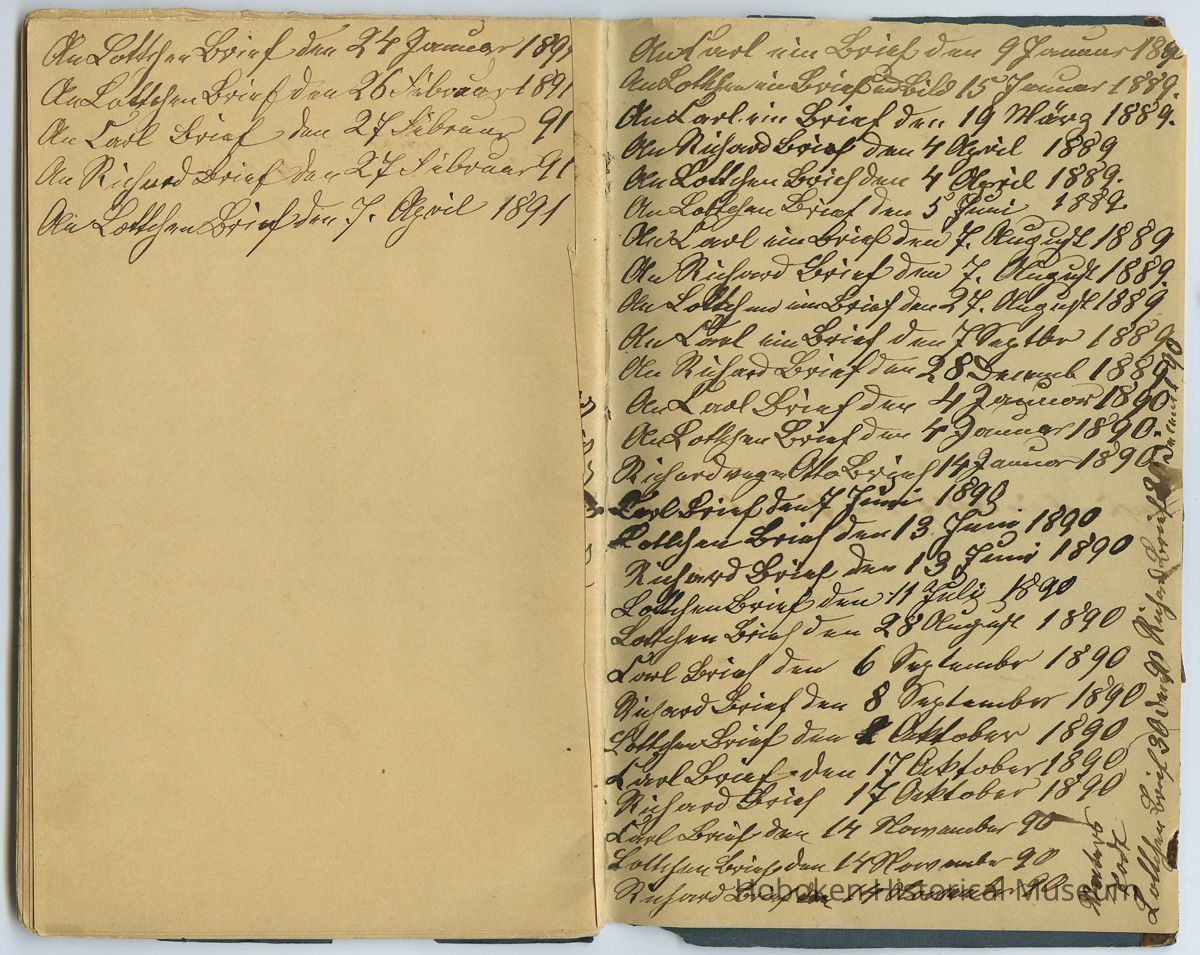 An Lottchen Brief den 24 Januar 1891
An Lottchen Brief den 26 Februar 1891
An Carl Brief den 27 Februar 91
An Richard Brief den 27 Februar 91
An Lottchen Brief den 7. April 1891
An Carl ein Brief den 9 Januar 188
An Lottchen ein Brief und Bild 15 Januar 1889.
An Carl ein Brief den 19 März 1889.
An Richard Brief den 4 April 1889
An Lottchen Brief den 4 April 1889.
An Lottchen Brief den 5 Juni 1889.
An Carl ein Brief den 7. August 1889
An Richard Brief den 7. August 1889.
An Lottchen ein Brief den 27. August 1889
An Carl ein Brief den 7 Septbr 1889
An Richard Brief den 28 Decemb 1889
An Carl Brief den 4 Januar 1890
An Lottchen Brief den 4 Januar 1890.
Richard wegen Otto Brief 14 Januar 1890
Carl Brief den 7 Juni 1890
Lottchen Brief den 13 Juni 1890
Richard Brief den 13 Juni 1890
Lottchen Brief den 11 Juli 1890
Lottchen Brief den 28 August 1890
Carl Brief den 6 September 1890
Richard Brief den 8 September 1890
Lottchen Brief den 2 Oktober 1890
Carl Brief den 17 Oktober 1890
Richard Brief 17 Oktober 1890
Carl Brief den 14 November 90
Lottchen Brief den 14 November 90
Richard Brief den 14 November 90
Vaters
Todt
Lottchen Brief 30 Richard Brief 30 Decem 1890
Hoboken Historical Museum